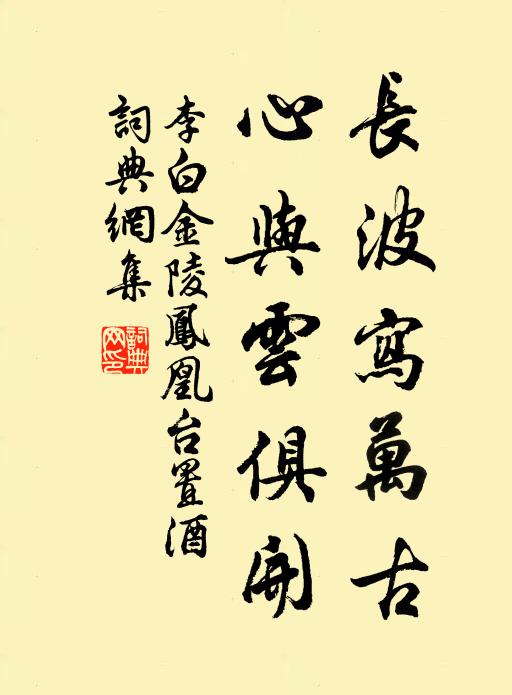 長波寫萬古
心與雲俱開
李白金陵鳳凰台置酒
詞典網集
詞典
网印